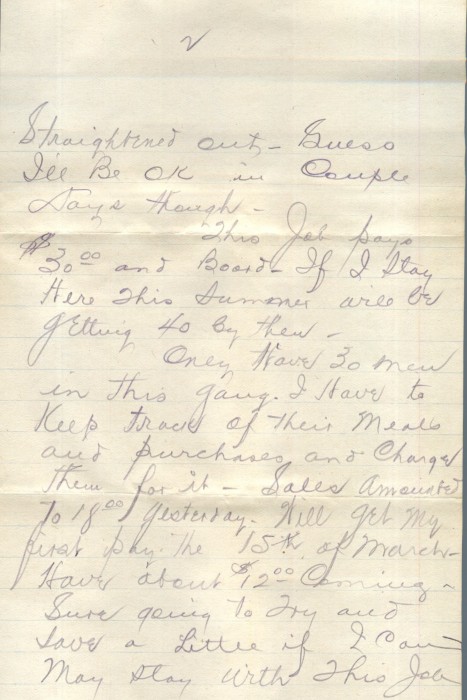 2
Straightened out - Guess
I'll Be OK in Couple
Days though -
This Job pays
$30.00 and Board - If I Stay
Here This Summer will be
getting 40 by then -
Only Have 30 men
in this gang. I Have to
Keep track of their Meals
and purchases, and Charge
Them for it - Sales Amounted
To 18.00 yesterday. Will get My
first pay the 15th of March -
Have about $12.00 Coming -
Sure going to Try and
Save a Little if I Can
May Stay With This Job